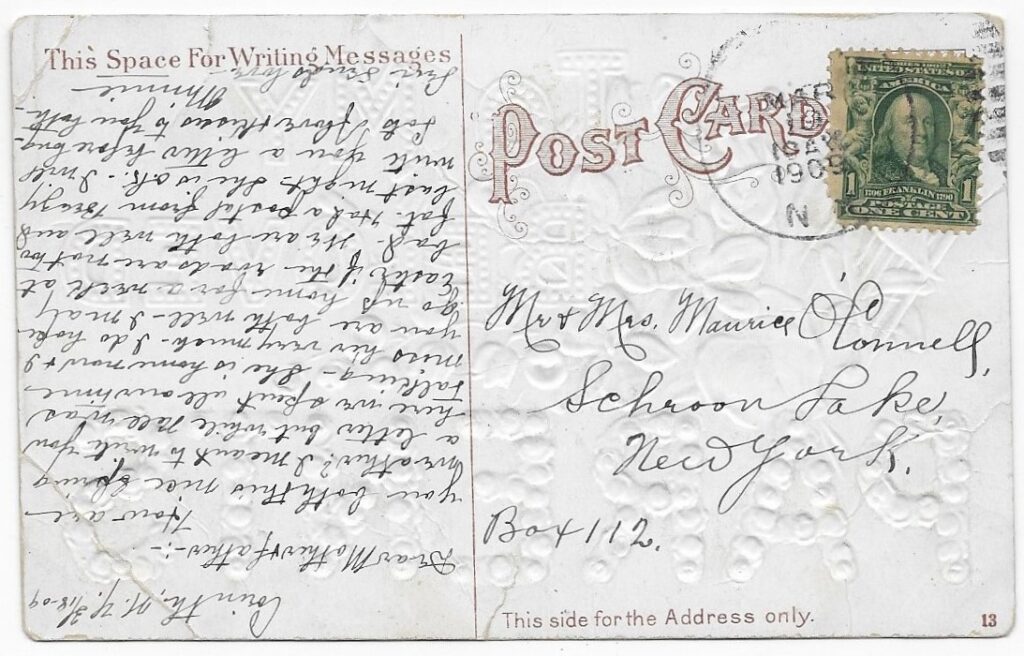 This Space For Writing Messages
POST CARD
Corinth, N.Y. 3/18-09
Dear Mother & father:-
How are
you both this nice spring
weather? I meant to write you
a letter but while Nell was
here we spent all our time
talking. She is home now & I
miss her very much. I do hope
you are both well. I may
go up home for a week at
Easter if the roads are not too
bad. We are both well and
fat. Had a postal from
last night. She is ok. I will
write you a letter before long.
Lots of love & kisses to you both.
Minnie
sends love.
MAR
1909
N
UNITED STATES OF
AMERICA
1 1706 FRANKLIN 1790 1
POSTAGE
ONE CENT
Mr & Mrs. Maurice O'Connell,
Schroon Lake,
New York.
Box 112.
This side for the Address only.
13